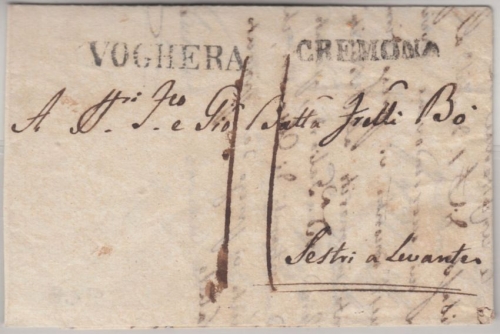 VOGHERA CREMONA
A Sri. Fco. e Gio Batta Frelli Bó
Sestri a Levante